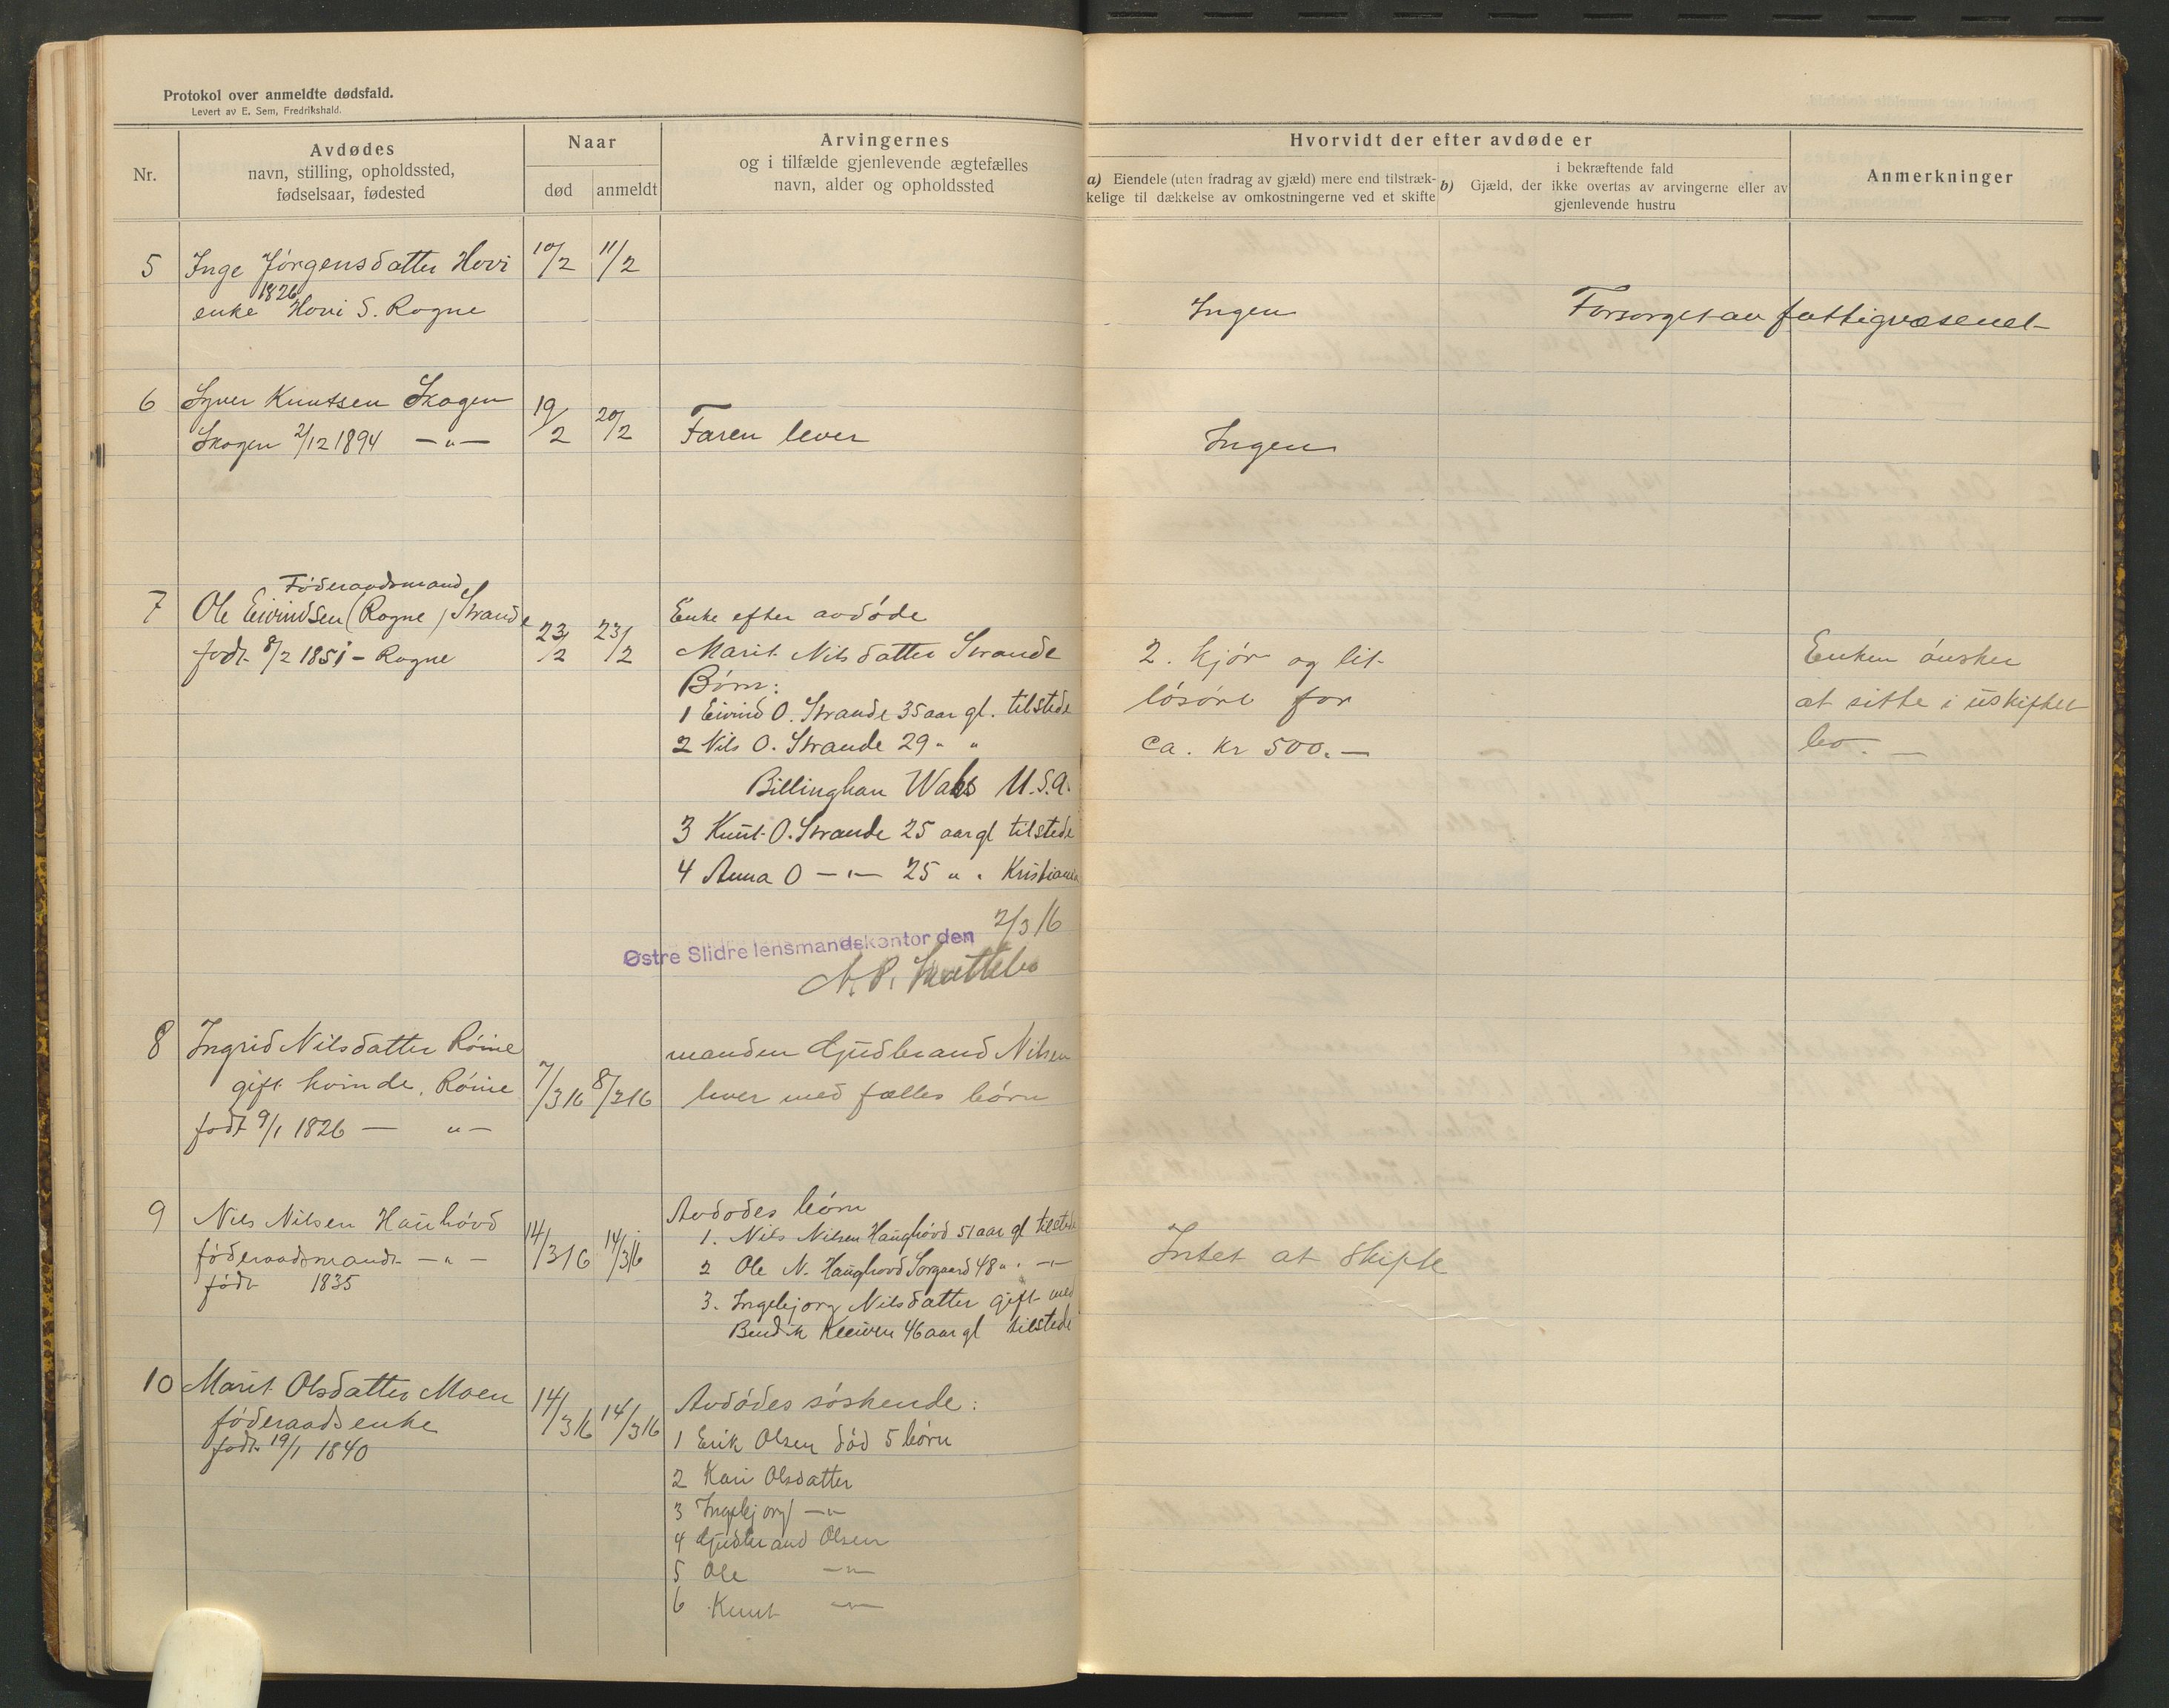 Protokol over anmeldte dødsfald.
Levert av E. Sem, Fredrikshald.
Nr.
Avdødes
navn, stilling, opholdssted,
fødselsaar, fødested
Naar
død
anmeldt
Arvingernes
og i tilfælde gjenlevende ægtefælles
navn, alder og opholdssted
Hvorvidt der efter avdøde er
a) Eiendele (uten fradrag av gjæld) mere end tilstræk-
kelige til dækkelse av omkostningerne ved et skifte
i bekræftende fald
b) Gjæld, der ikke overtas av arvingerne eller av
gjenlevende hustru
Anmerkninger
5 Inge Jörgensdatter Hovi 10/2 11/2
1826
enke Hovi S. Rogne
Ingen Forsørget av fattigvæsenet
6 Syver Knutsen Skogen 19/2 20/2
Skogen 2/12 1894 —„—
Faren lever
Ingen
Föderaadsmand
7 Ole Eivindsen (Rogne) Strande 23/2 23/2
födt 8/2 1851 - Rogne
Enke efter avdöde
Marit Nilsdatter Strande
Börn:
1 Eivind O. Strande 35 aar gl. tilstede
2 Nils O. Strande 29 „ „
Billinghan Wahs U.S.A.
3 Knut O. Strande 25 aar gl tilstede
4 Anna O —„— 25 „ „ Kristiania
2. kjör og lit
lösöre for
ca. Kr 500.—
Enken önsker
at sitte i uskiftet
bo. —
Østre Slidre lensmandskontor den 2/3 16
N. P.
8 Ingrid Nilsdatter Röine 7/3 16 8/3 16
gift kvinde, Röine
födt 9/1 1826 — „ —
manden Gudbrand Nilsen
lever med fælles börn
9 Nils Nilsen Hauhövd 14/3 16 14/3 16
föderaadsmand —„—
födt 1835
Avdödes börn
1. Nils Nilsen Haughövd 51 aar gl tilstede
2 Ole N. Haughovd Sorgaard 48 „ „ —„—
3. Ingebjorg Nilsdatter gift med
Bendik 46 aar gl tilstede
Intet at skifte
10 Marit Olsdatter Moen 14/3 16 14/3 16
föderaadsenke
födt 19/1 1840
Avdödes söskende:
1 Erik Olsen död 5 börn
2 Kari Olsdatter
3 Ingebjorg —„—
4 Gudbrand Olsen
5 Ole —„—
6 Knut —„—